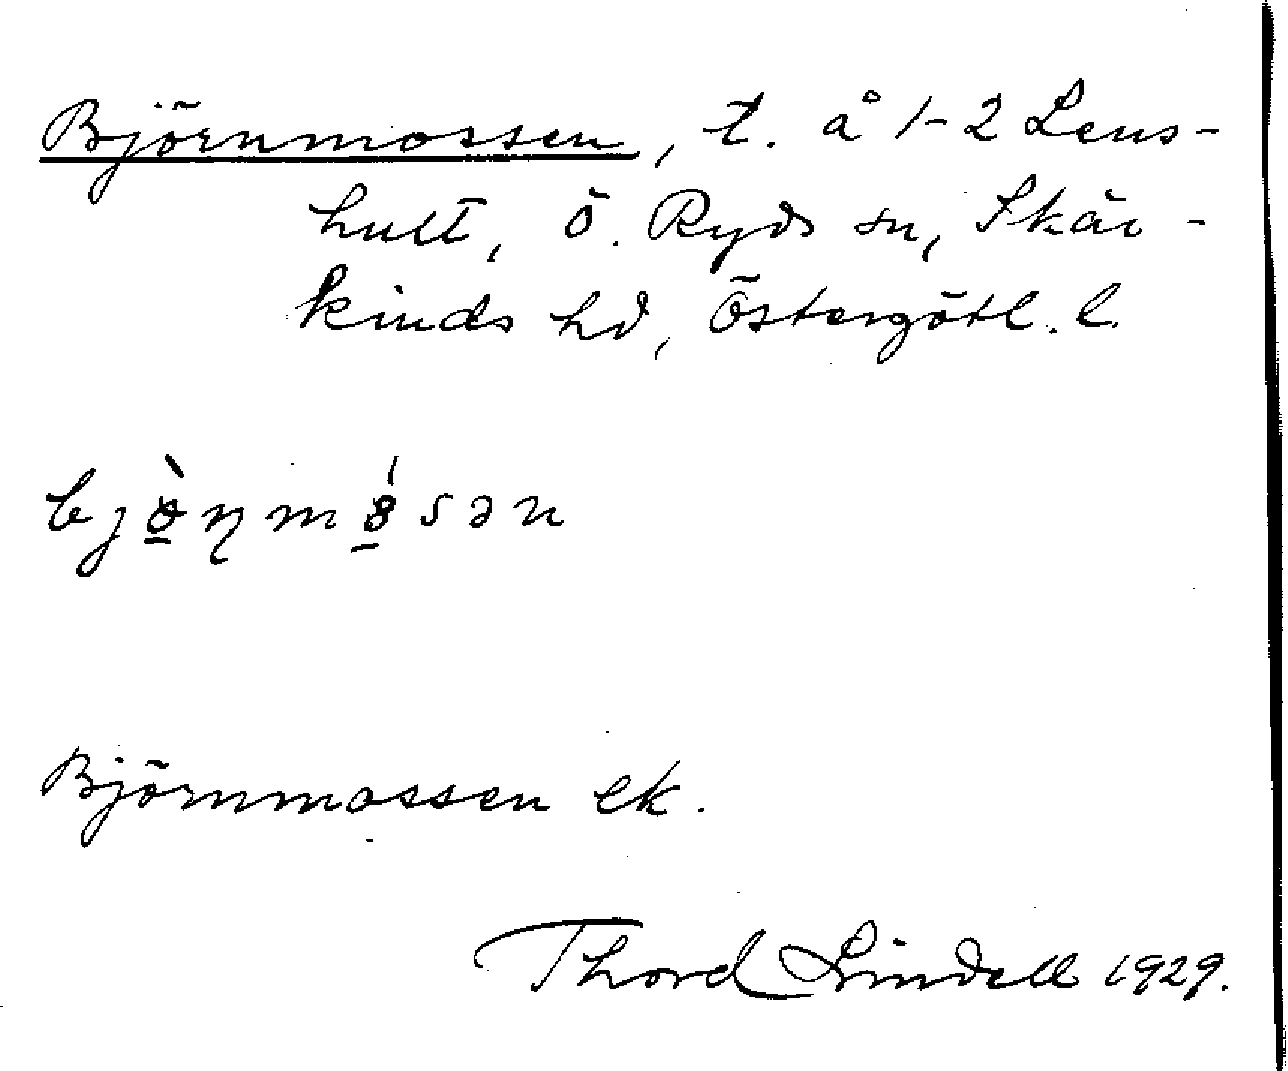 Björnmossen, t. å 1-2 Lens-
hult, Ö. Ryds sn, Skär-
kinds hd, Östergötl. l.
Björnmossen ek.
Thord Lindell 1929.